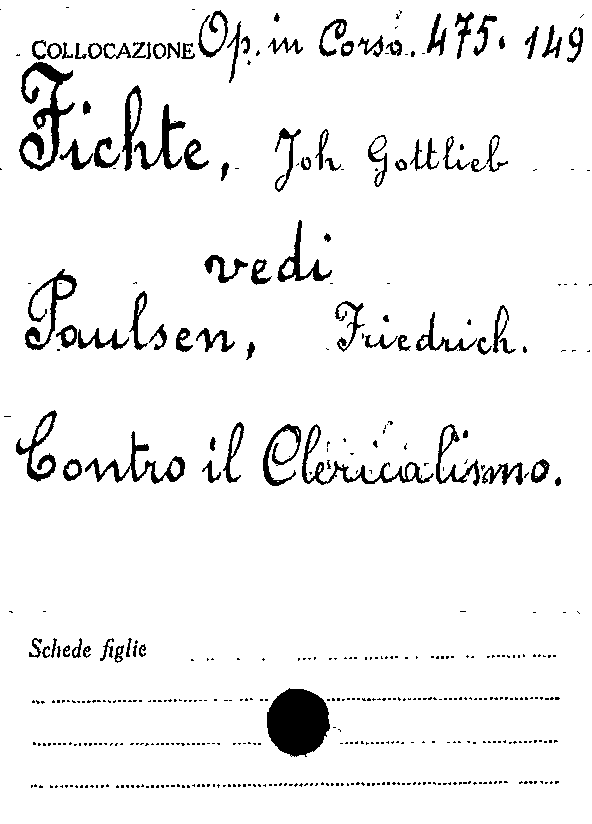 COLLOCAZIONE Op. in Corso. 475. 149
Fichte, Joh Gottlieb
vedi
Paulsen, Friedrich.
Contro il Clericalismo.
Schede figlie